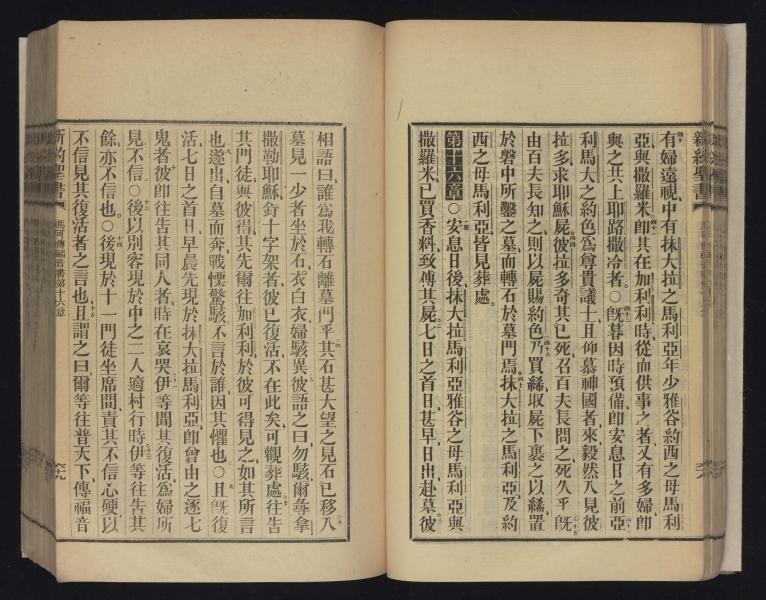 新約聖書
有婦遠視中有抹大拉之馬利亞年少雅谷約西之母馬利
亞與撒羅米卽其在加利利時從而供事之者又有多婦卽
與之共上耶路撒冷者○旣暮因時預備卽安息日之前亞
利馬太之約色爲尊貴議士且仰慕神國者來毅然入見彼
拉多求耶穌屍彼拉多奇其已死召百夫長問之死久乎旣
由百夫長知之則以屍賜約色乃買絺取屍下裹之以絺置
於磐中所鑿之墓而轉石於墓門焉抹大拉之馬利亞及約
西之母馬利亞皆見葬處。
第十六章○安息日後抹大拉馬利亞雅谷之母馬利亞與
撒羅米已買香料致傅其屍七日之首日甚早日出赴墓彼
六八
相語曰誰爲我轉石離墓門乎其石甚大望之見石已移入
墓見一少者坐於右衣白衣婦駭異彼語之曰勿駭爾尋拿
撒勒耶穌釘十字架者彼已復活不在此矣可觀葬處往告
其門徒與彼得其先爾往加利利於彼可得見之如其所言
也遂出自墓而奔戰慄驚駭不言於誰因其懼也○且旣復
活七日之首日早晨先現於抹大拉馬利亞卽曾由之逐七
鬼者彼卽往告其同人者時在哀哭伊等聞其復活爲婦所
見不信○後以別容現於中之二人適村行時伊等往告其
餘亦不信也○後現於十一門徒坐席間責其不信心硬以
不信見其復活者之言也且謂之曰爾等往普天下傳福音
新約聖書
馬可傳福音書第十六章
六九